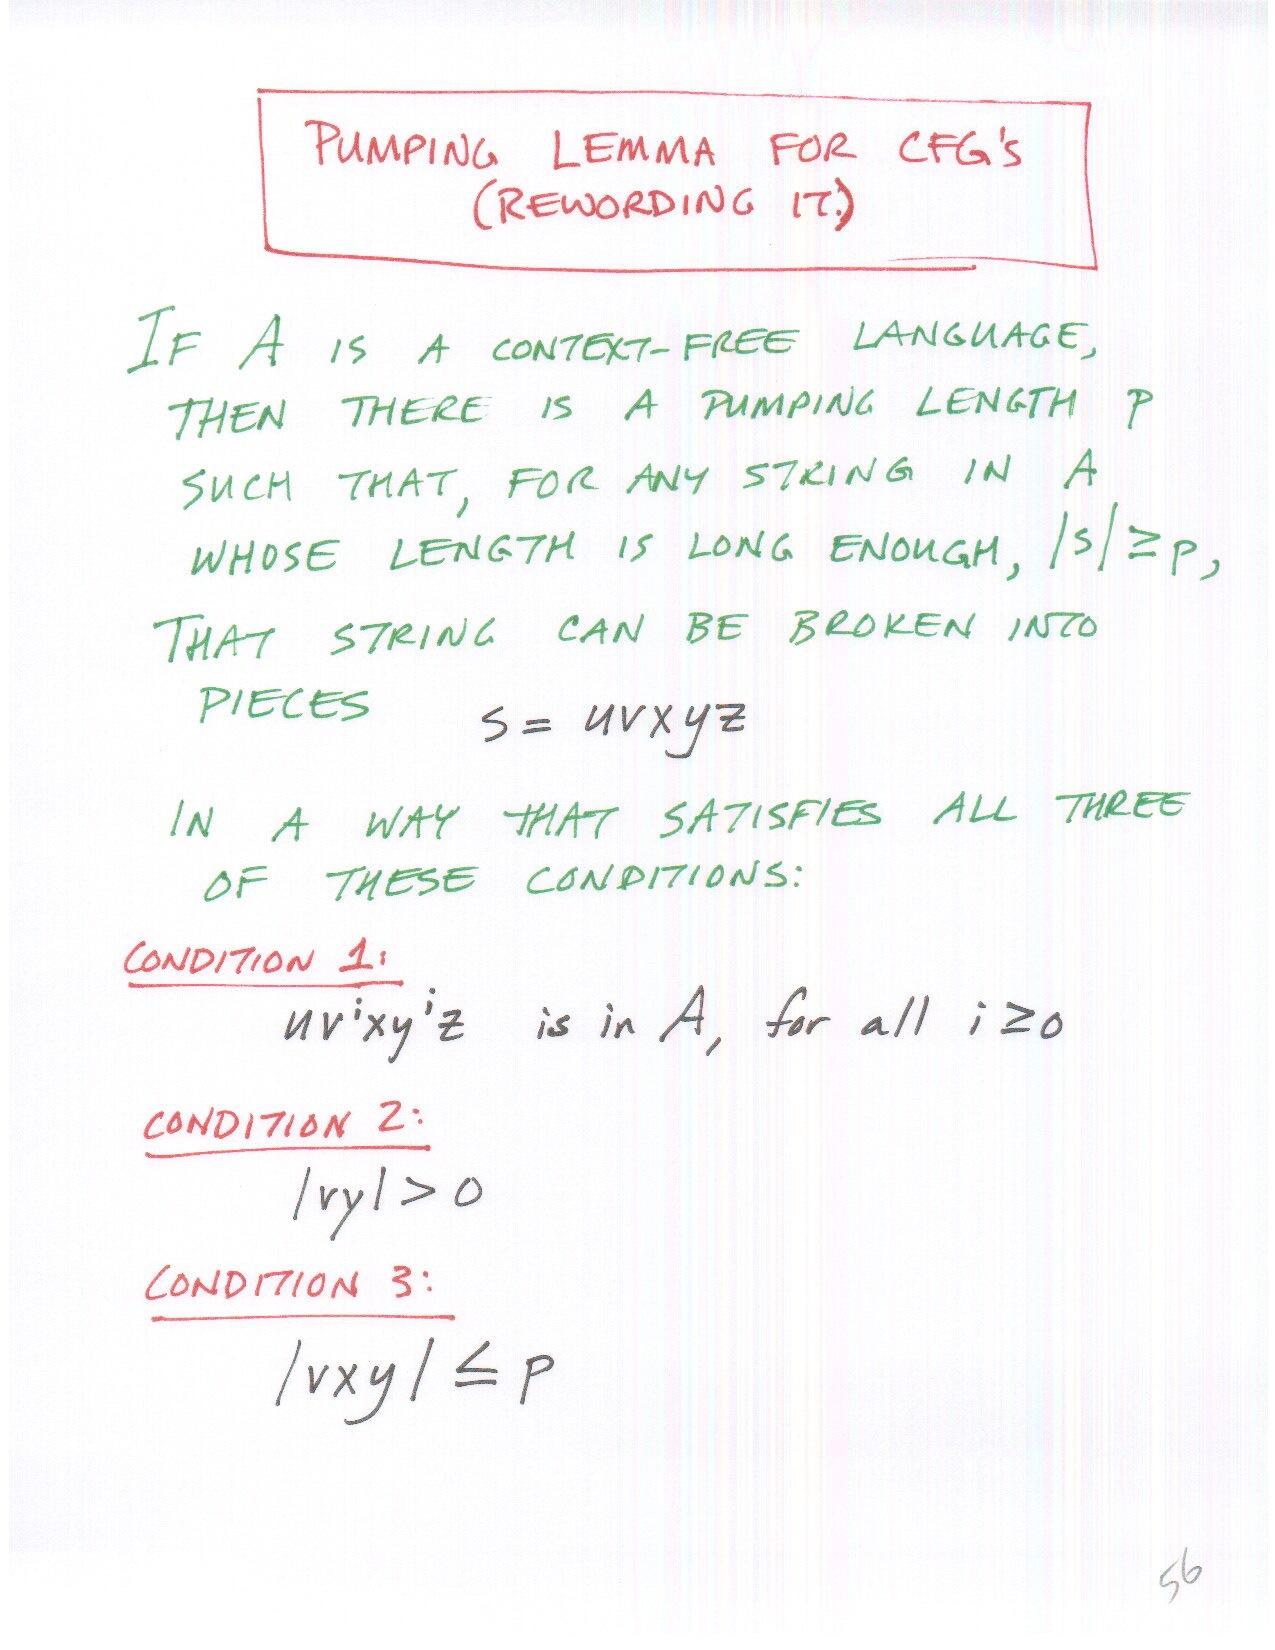 PUMPING LEMMA FOR CFG's
(REWORDING IT.)
IF A IS A CONTEXT-FREE LANGUAGE,
THEN THERE IS A PUMPING LENGTH P
SUCH THAT, FOR ANY STRING IN A
WHOSE LENGTH IS LONG ENOUGH, |s| ≥ p,
THAT STRING CAN BE BROKEN INTO
PIECES s = uvxyz
IN A WAY THAT SATISFIES ALL THREE
OF THESE CONDITIONS:
CONDITION 1:
uvⁱxyⁱz is in A, for all i ≥ 0
CONDITION 2:
|vy| > 0
CONDITION 3:
|vxy| ≤ p
56